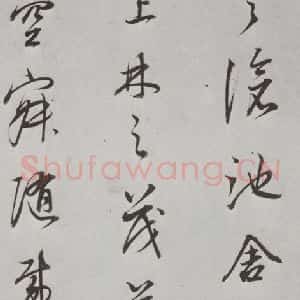 滄池舍
上林之茂
空寐随
Shufawang.CN